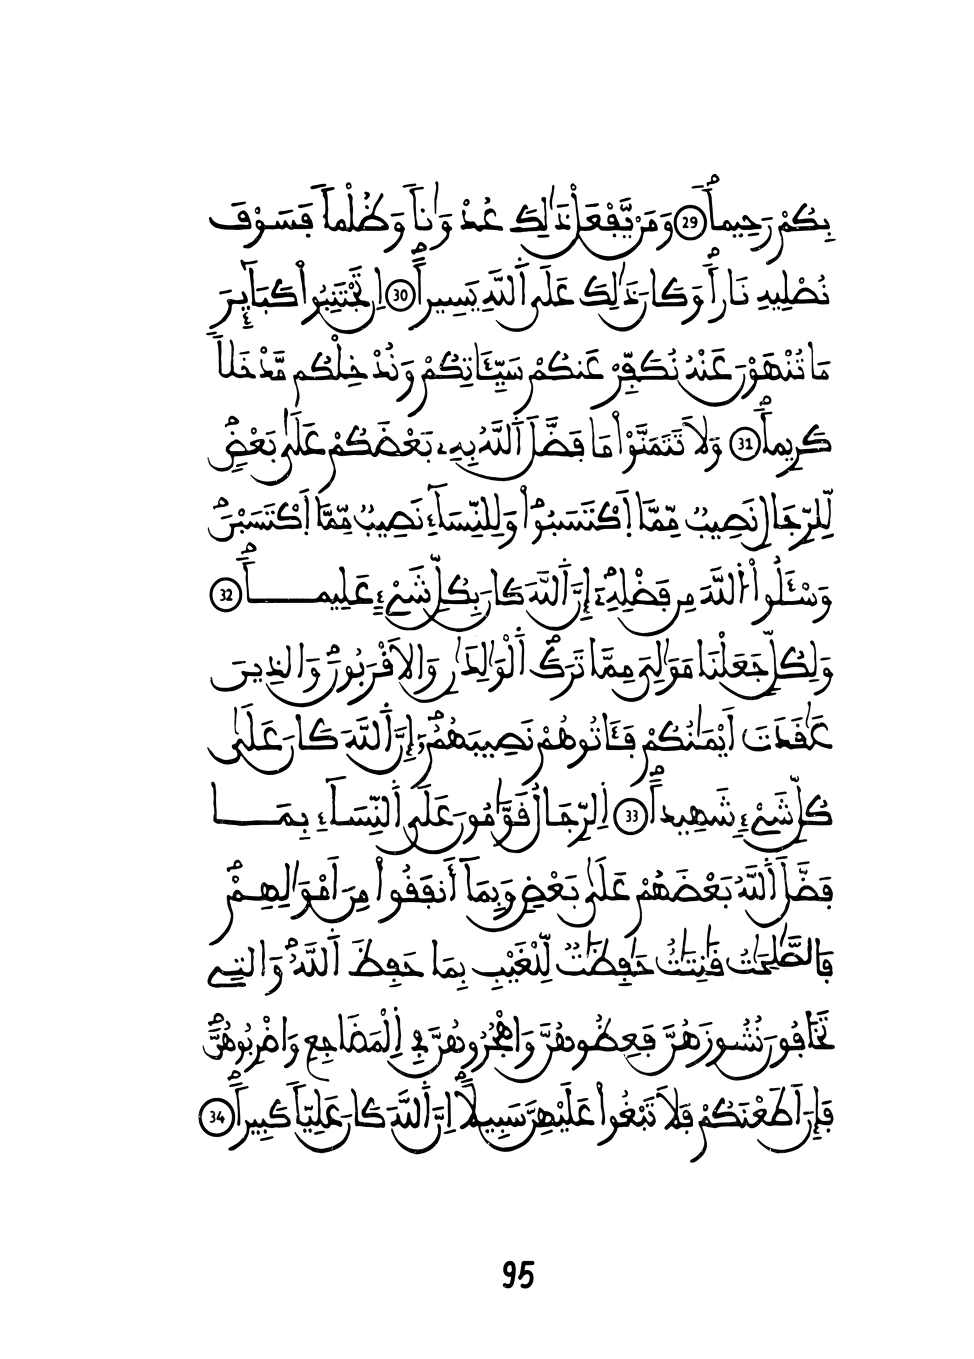 بِكُمْ رَحِيماًۖ 29 وَمَنْ يَّفْعَلْ ذَٰلِكَ عُدْوَٰناً وَظُلْماً فَسَوْفَ
نُصْلِيهِ نَاراًۖ وَكَانَ ذَٰلِكَ عَلَى اَ۬للَّهِ يَسِيراًۖ 30 اِن تَجْتَنِبُواْ كَبَآئِرَ
مَا تُنْهَوْنَ عَنْهُ نُكَفِّرْ عَنكُمْ سَيِّـَٔاتِكُمْ وَنُدْخِلْكُم مَّدْخَلاٗ
كَرِيماًۖ 31 وَلَا تَتَمَنَّوْاْ مَا فَضَّلَ اَ۬للَّهُ بِهِۦ بَعْضَكُمْ عَلَىٰ بَعْضٍۖ
لِّلرِّجَالِ نَصِيبٌ مِّمَّا اَ۪كْتَسَبُواْۖ وَلِلنِّسَآءِ نَصِيبٌ مِّمَّا اَ۪كْتَسَبْنَۖ
وَسْـَٔلُواْ اُ۬للَّهَ مِن فَضْلِهِۦٓۖ إِنَّ اَ۬للَّهَ كَانَ بِكُلِّ شَےْءٍ عَلِيماًۖ 32
وَلِكُلّٖ جَعَلْنَا مَوَٰلِيَ مِمَّا تَرَكَ اَ۬لْوَٰلِدَٰنِ وَالَاقْرَبُونَۖ وَالذِينَ
عَٰقَدَتَ اَيْمَٰنُكُمْ فَـَٔاتُوهُمْ نَصِيبَهُمُۥٓۖ إِنَّ اَ۬للَّهَ كَانَ عَلَىٰ
كُلِّ شَےْءٍ شَهِيداًۖ 33 اِ۬لرِّجَالُ قَوَّٰمُونَ عَلَى اَ۬لنِّسَآءِ بِمَا
فَضَّلَ اَ۬للَّهُ بَعْضَهُمْ عَلَىٰ بَعْضٖ وَبِمَآ أَنفَقُواْ مِنَ اَمْوَٰلِهِمْۖ
فَالصَّٰلِحَٰتُ قَٰنِتَٰتٌ حَٰفِظَٰتٌ لِّلْغَيْبِ بِمَا حَفِظَ اَ۬للَّهُۖ وَالتِے
تَخَافُونَ نُشُوزَهُنَّ فَعِظُوهُنَّ وَاهْجُرُوهُنَّ فِے اِ۬لْمَضَاجِعِ وَاضْرِبُوهُنَّۖ
فَإِنَ اَطَعْنَكُمْ فَلَا تَبْغُواْ عَلَيْهِنَّ سَبِيلاًۖ اِنَّ اَ۬للَّهَ كَانَ عَلِيّاٗ كَبِيراًۖ 34
95